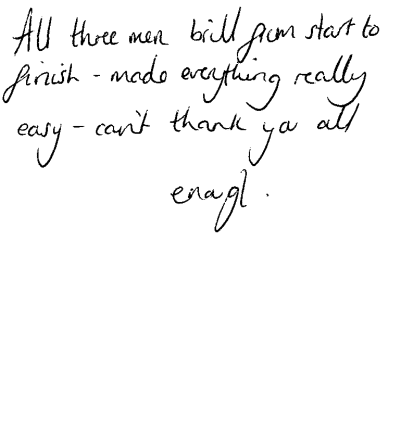 All three men brill from start to
finish - made everything really
easy - can't thank you all
enough.